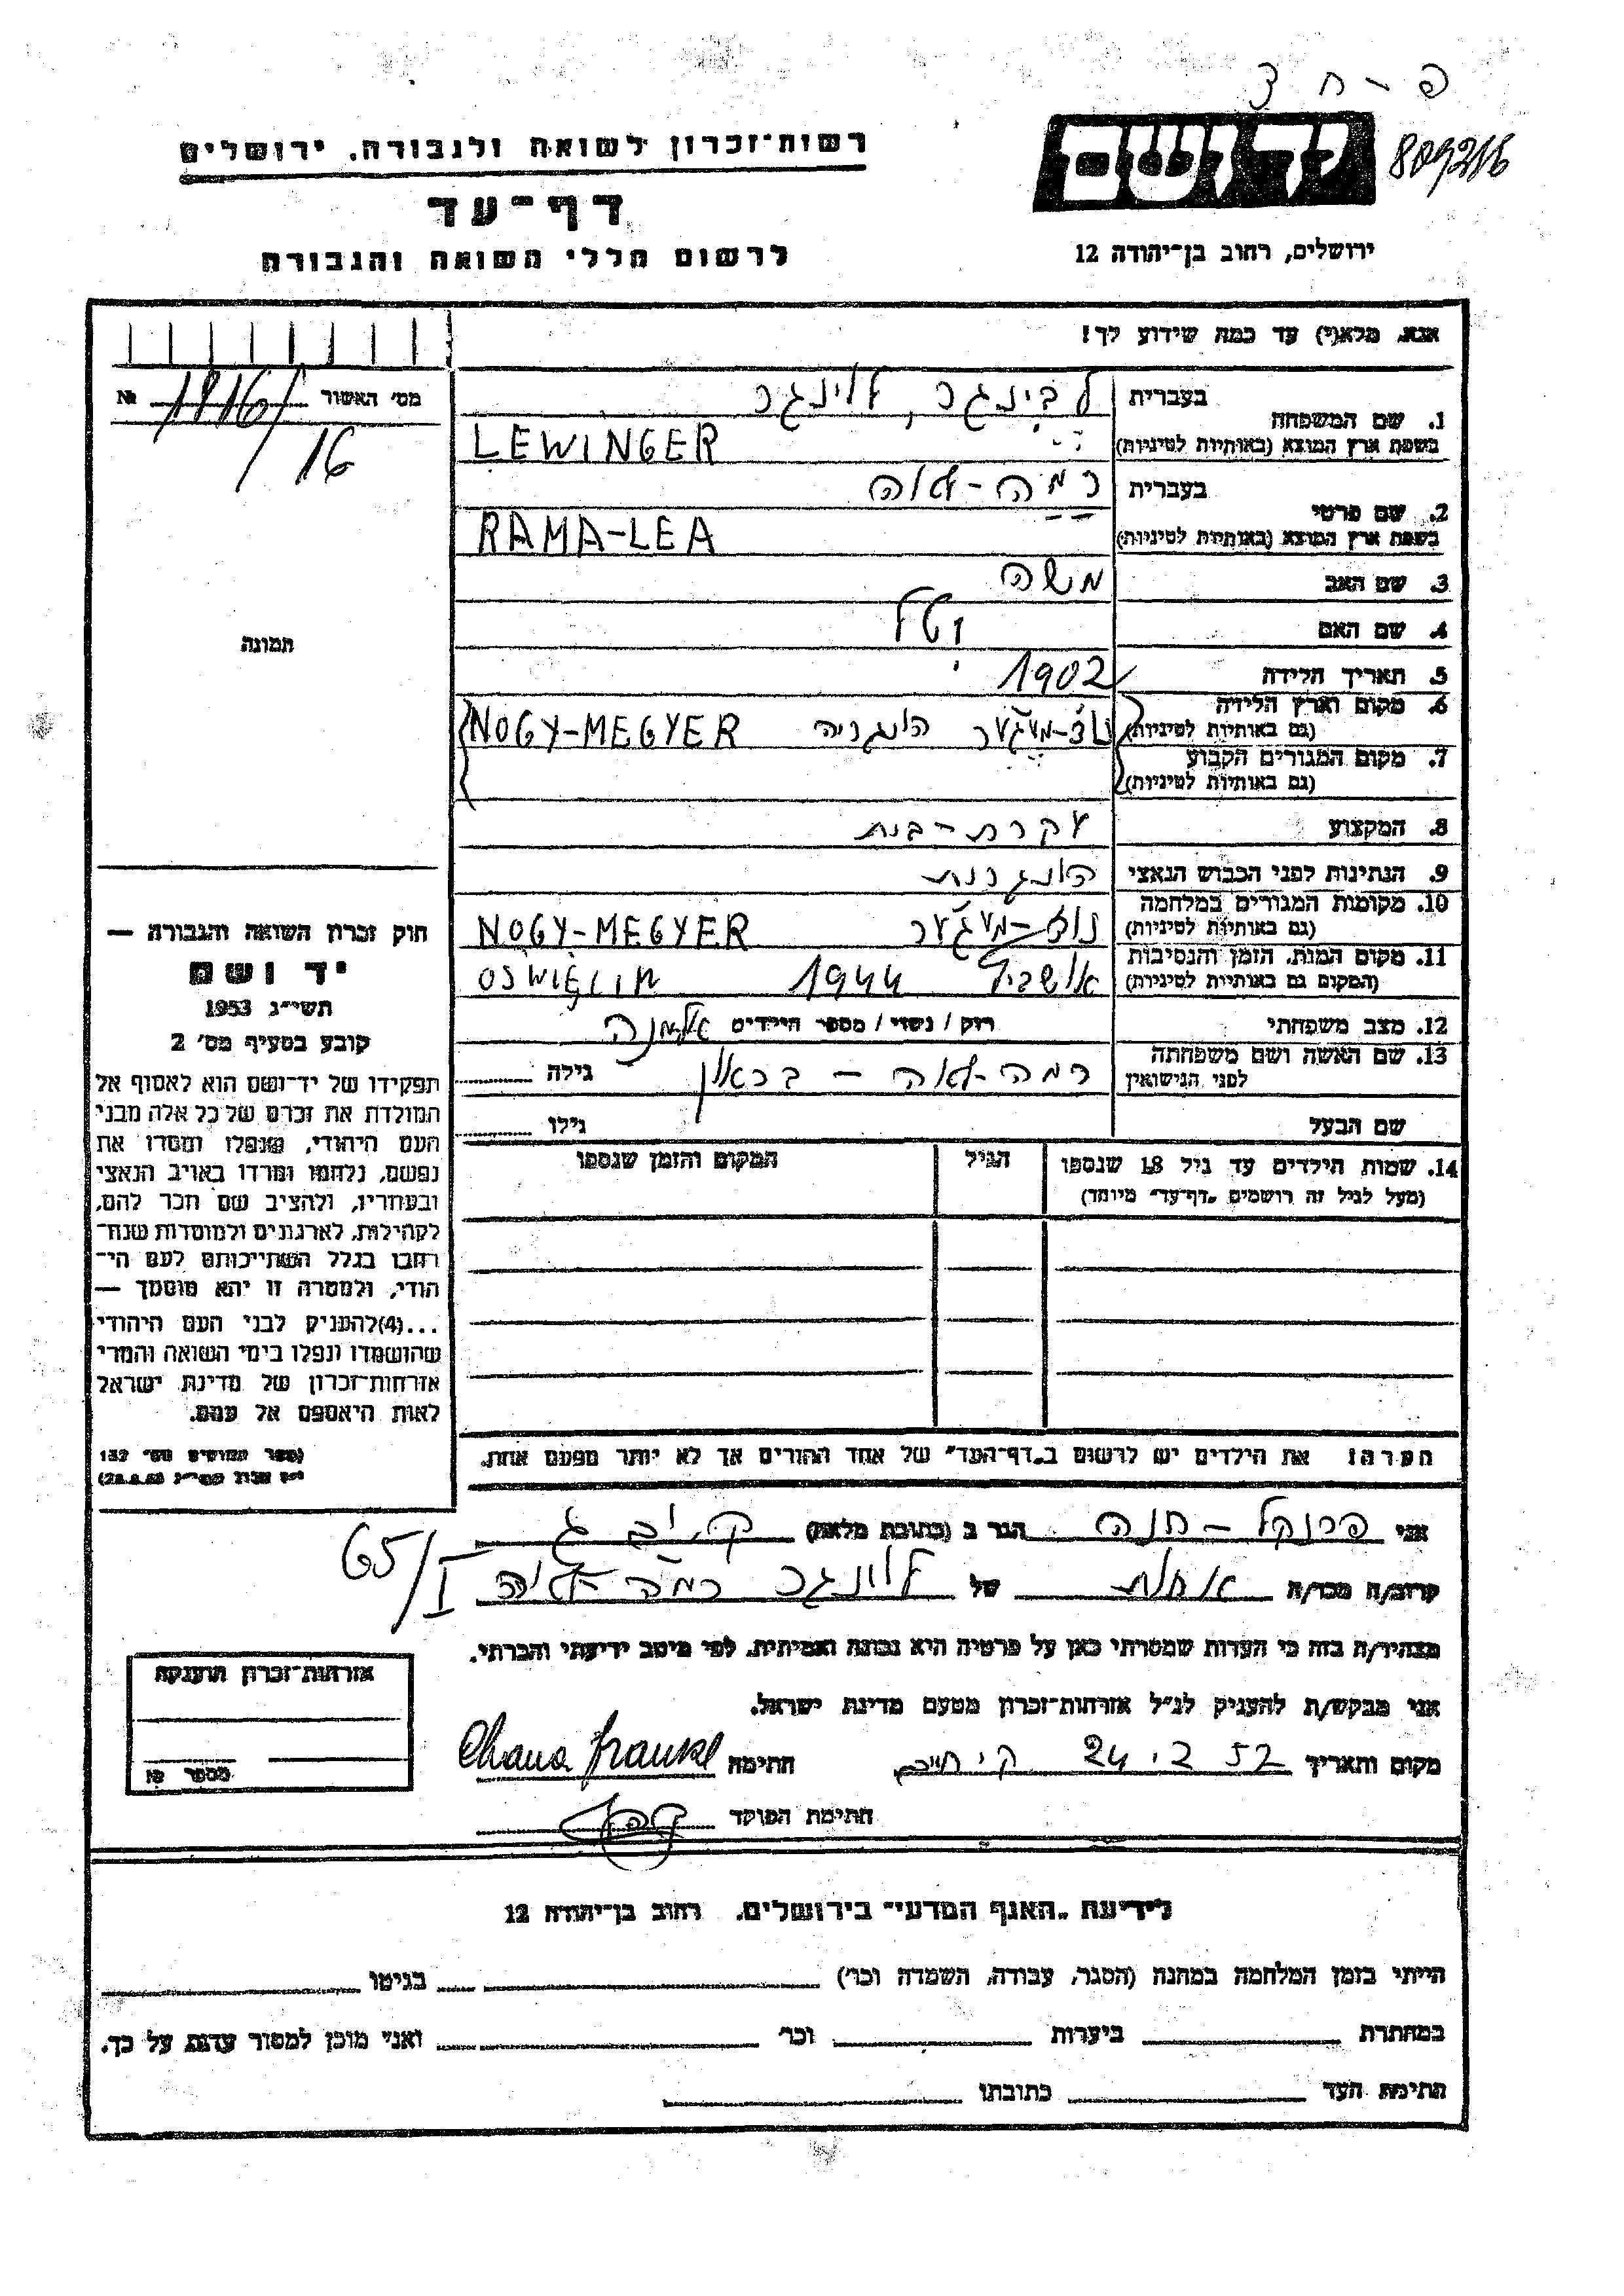 פ-ח 3
רשות־זכרון לשואה ולגבורה, ירושלים
יד ושם
809216
דף־עד
ירושלים, רחוב בן־יהודה 12
לרשום חללי השואה והגבורה
אנא, מלא(י) עד כמה שידוע לך!
מס׳ האשור 1816/16 №
תמונה
1. שם המשפחה
בעברית לבינגר, לוינגר
בשפת ארץ המוצא (באותיות לטיניות) LEWINGER
2. שם פרטי
בעברית רמה-לאה
בשפת ארץ המוצא (באותיות לטיניות) RAMA-LEA
3. שם האב משה
4. שם האם
5. תאריך הלידה 1902
6. מקום וארץ הלידה
(גם באותיות לטיניות) הונגריה NOGY-MEGYER
7. מקום המגורים הקבוע
(גם באותיות לטיניות)
8. המקצוע עקרת-בית
9. הנתינות לפני הכבוש הנאצי הונגרית
10. מקומות המגורים במלחמה
(גם באותיות לטיניות) NOGY-MEGYER
11. מקום המות, הזמן והנסיבות
(המקום גם באותיות לטיניות) 1944 OSWIĘCIM
12. מצב משפחתי רוק / נשוי / מספר הילדים אלמנה
13. שם האשה ושם משפחתה
לפני הנישואין רמה-לאה - בראון גילה
שם הבעל גילו
14. שמות הילדים עד גיל 18 שנספו
(מעל לגיל זה רושמים „דף־עד״ מיוחד)
הגיל
המקום והזמן שנספו
הערה! את הילדים יש לרשום ב„דף־העד״ של אחד ההורים אך לא יותר מפעם אחת.
חוק זכרון השואה והגבורה —
יד ושם
תשי״ג 1953
קובע בסעיף מס׳ 2
תפקידו של יד־ושם הוא לאסוף אל
המולדת את זכרם של כל אלה מבני
העם היהודי, שנפלו ומסרו את
נפשם, נלחמו ומרדו באויב הנאצי
ובעוזריו, ולהציב שם וזכר להם,
לקהילות, לארגונים ולמוסדות שנח־
רבו בגלל השתייכותם לעם הי־
הודי, ולמטרה זו יהא מוסמך —
...(4)להעניק לבני העם היהודי
שהושמדו ונפלו בימי השואה והמרי
אזרחות־זכרון של מדינת ישראל
לאות היאספם אל עמם.
(ספר החוקים מס׳ 132
אני פרנקל - חנה הגר ב (כתובת מלאה)
קרוב/ה מכר/ה אחות של לוינגר רמה
65/I
מצהיר/ה בזה כי העדות שמסרתי כאן על פרטיה היא נכונה ואמיתית, לפי מיטב ידיעתי והכרתי.
אני מבקש/ת להעניק לנ״ל אזרחות־זכרון מטעם מדינת ישראל.
מקום ותאריך 24 חתימה Chana Frankel
חתימת הפוקד
אזרחות־זכרון הוענקה
מספר №
לידיעת „האגף המדעי״ בירושלים, רחוב בן־יהודה 12
הייתי בזמן המלחמה במחנה (הסגר, עבודה, השמדה וכו׳) בגיטו
במחתרת ביערות וכו׳ ואני מוכן למסור עדות על כך.
חתימת העד כתובתו